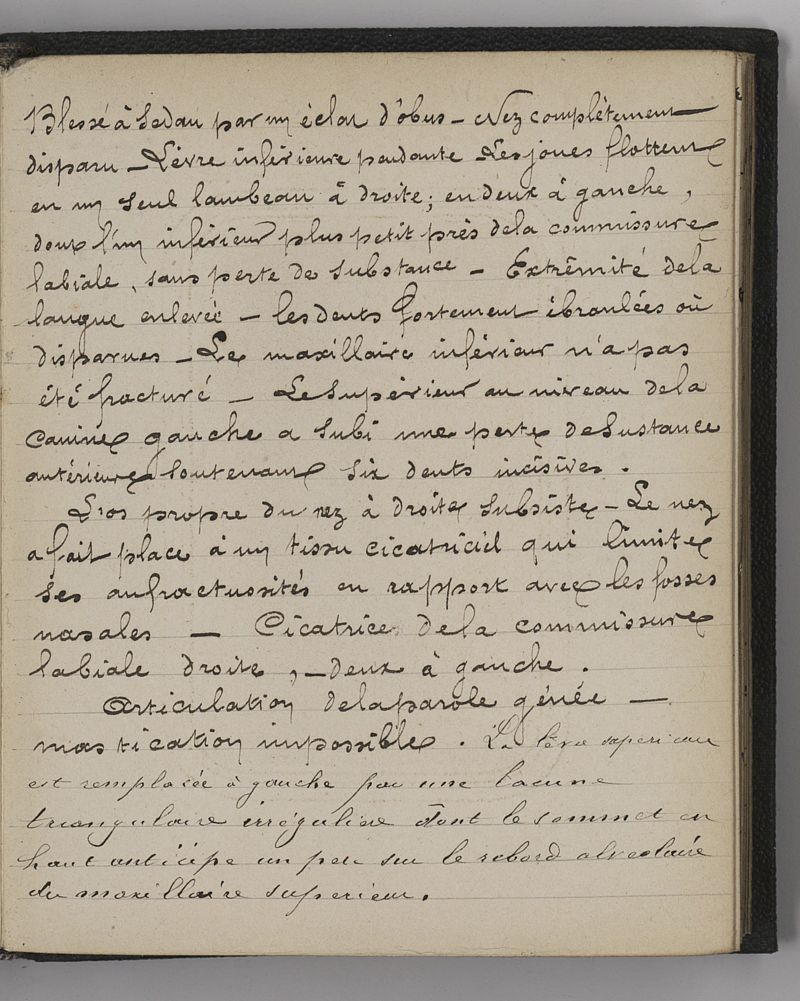 Blessé à Sedan par un éclat d'obus — Nez complètement
disparu — Lèvre inférieure pendante — Les joues flottent
en un seul lambeau à droite ; en deux à gauche,
dont l'un inférieur plus petit près de la commissure
labiale, sans perte de substance — Extrêmité de la
langue enlevée — les dents fortement ébranlées où
disparues — Le maxillaire inférieur n'a pas
été fracturé — Le Supérieur au niveau de la
canine gauche a subi une perte de Sustance
antérieure soutenant six dents incisives.
L'os propre du nez à droite subsiste — Le nez
a fait place à un tissu cicatriciel qui limite
ses anfractuosités en rapport avec les fosses
nasales — Cicatrice de la commissure
labiale droite, — deux à gauche.
Articulation de la parole gênée —
mastication impossible. La lèvre superieure
est remplacée à gauche par une lacune
triangulaire irrégulière dont le sommet en
haut anticipe un peu sur le rebord alveolaire
du maxillaire superieur.